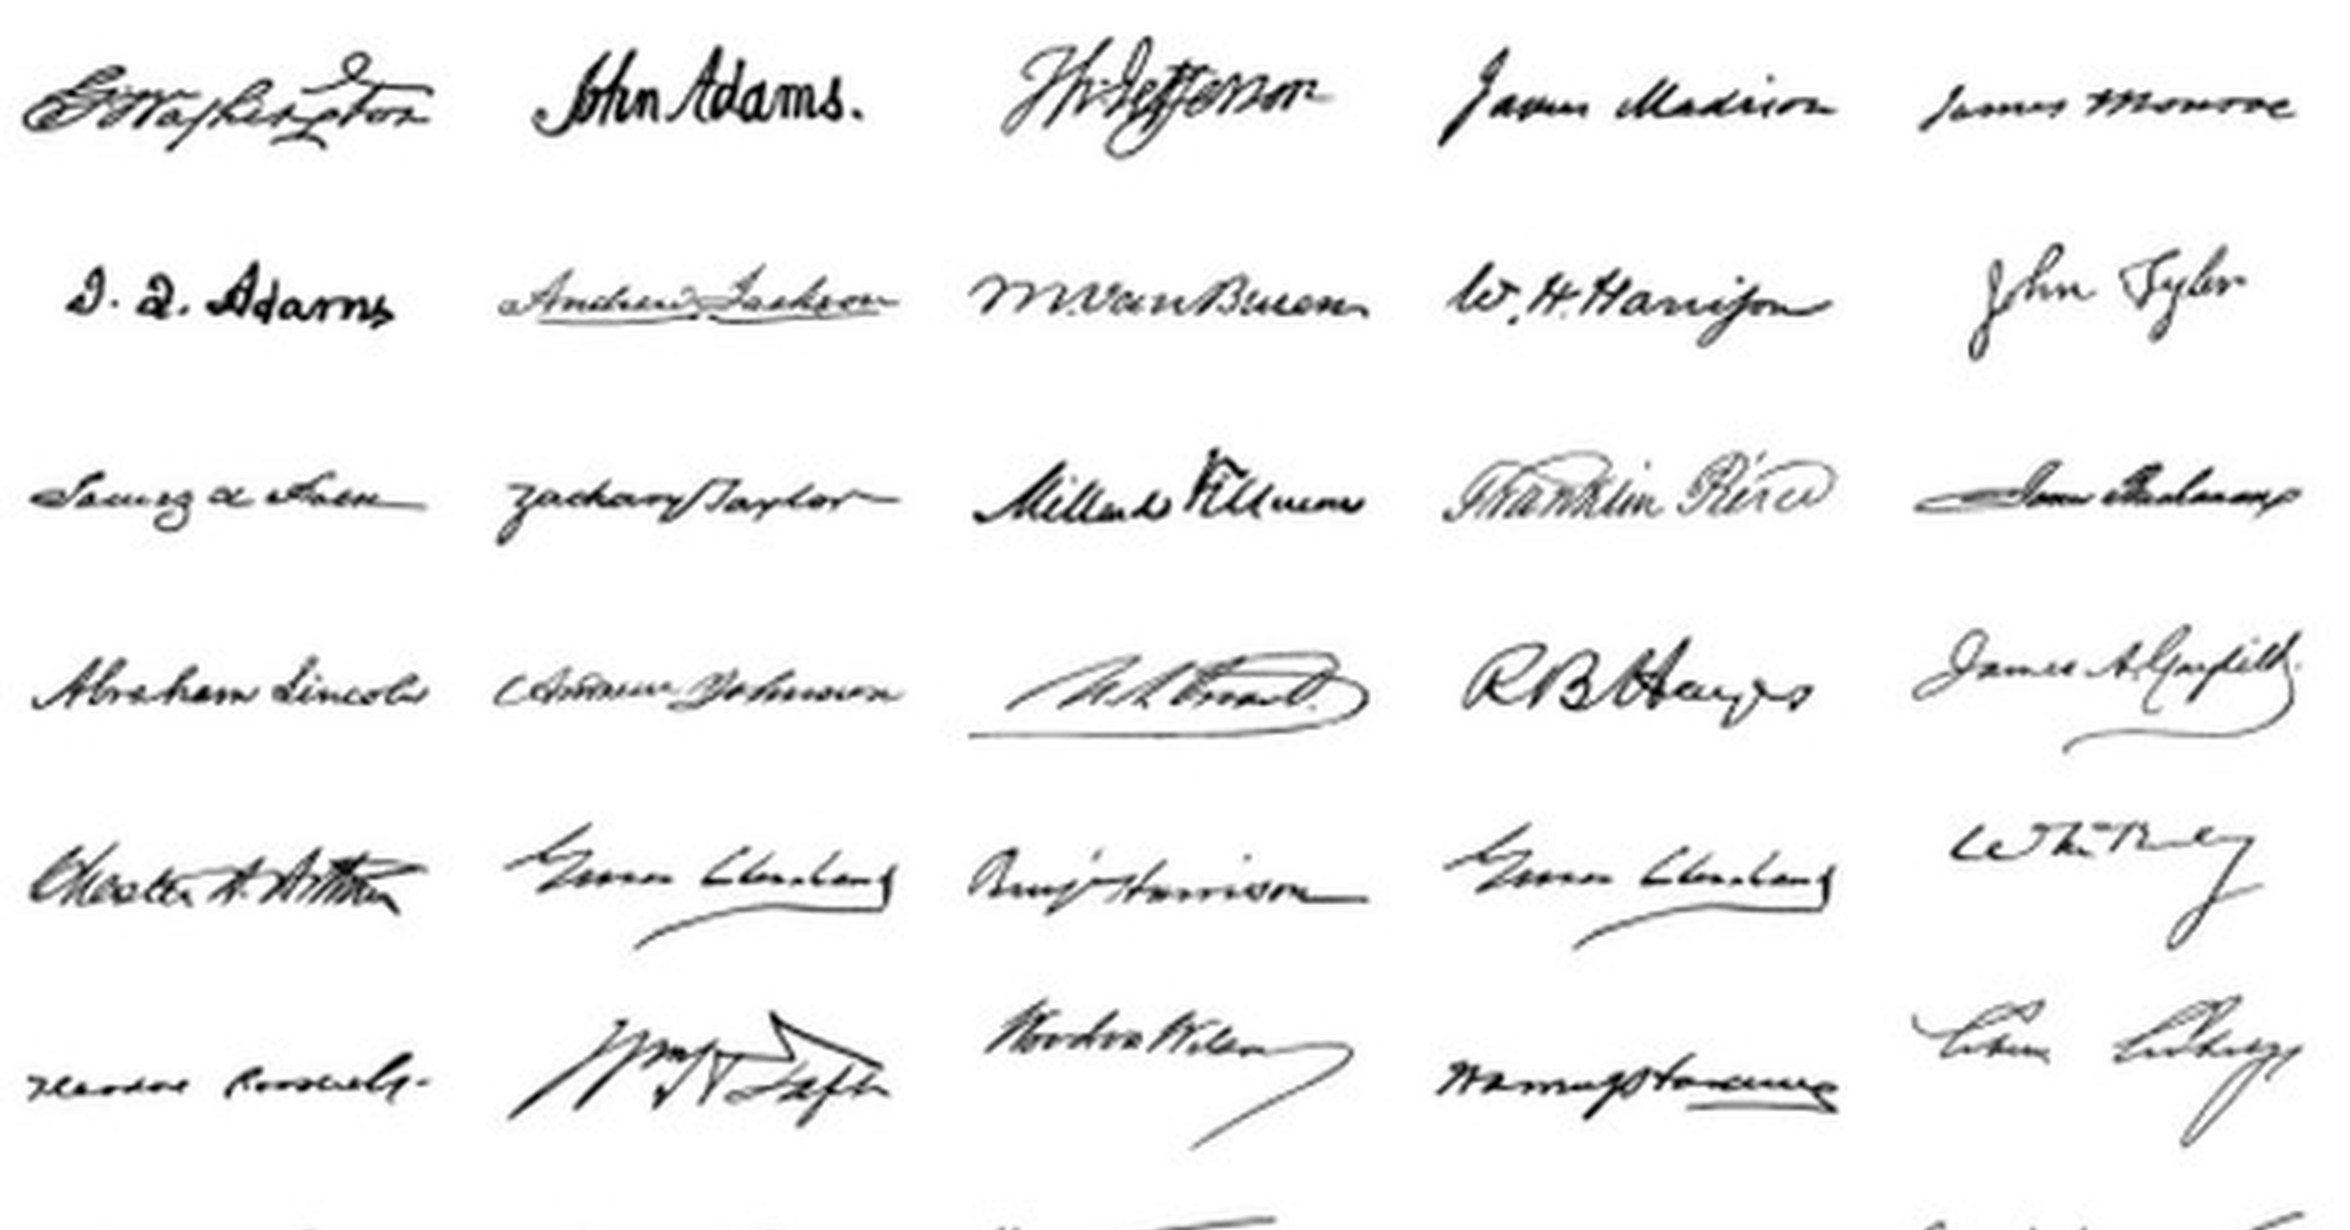 G Washington John Adams. Th: Jefferson James Madison James Monroe
J. Q. Adams Andrew Jackson M. Van Buren W. H. Harrison John Tyler
James K Polk Zachary Taylor Millard Fillmore Franklin Pierce James Buchanan
Abraham Lincoln Andrew Johnson U. S. Grant R B Hayes James A. Garfield
Chester A. Arthur Grover Cleveland Benj Harrison Grover Cleveland Wm McKinley
Theodore Roosevelt Wm H Taft Woodrow Wilson Warren G Harding Calvin Coolidge